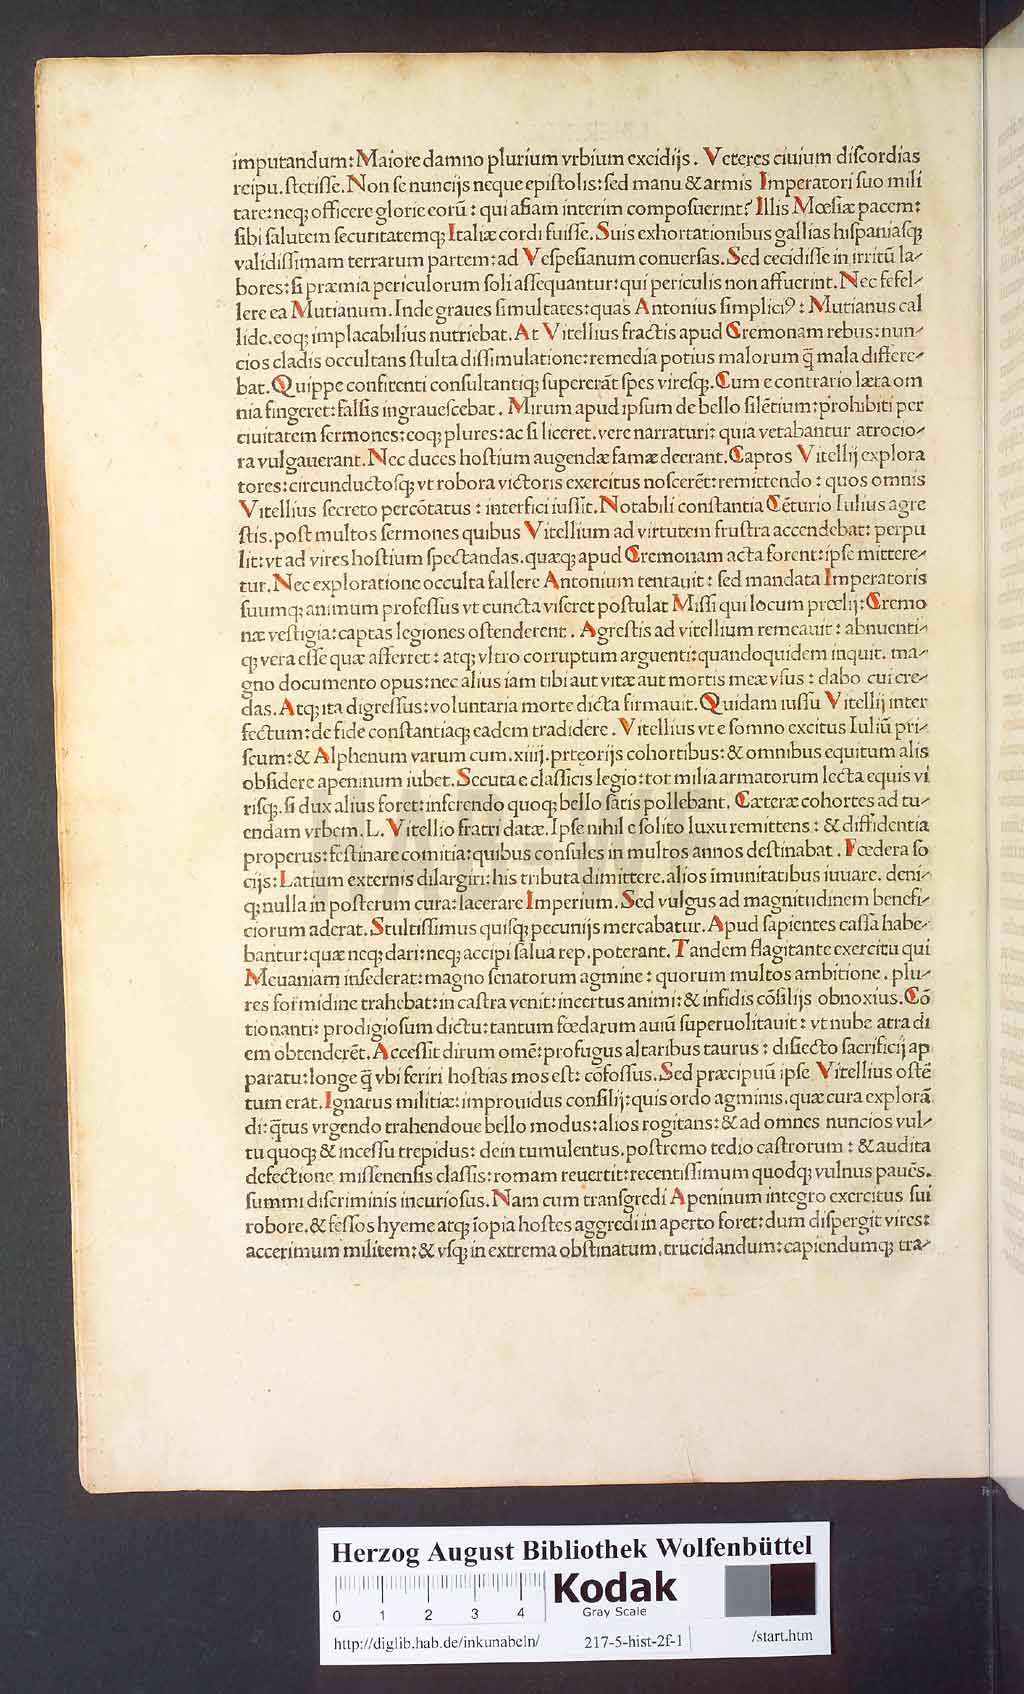 imputandum: Maiore damno plurium vrbium excidijs. Veteres ciuium discordias
reipu. stetisse. Non se nuncijs neque epistolis: sed manu & armis Imperatori suo mili
tare: neqꝫ officere glorie eorū: qui asiam interim composuerint? Illis Mœsiæ pacem:
sibi salutem securitatemqꝫ Italiæ cordi fuisse. Suis exhortationibus gallias hispaniasqꝫ
validissimam terrarum partem: ad Vespesianum conuersas. Sed cecidisse in irritū la-
bores: si præmia periculorum soli assequantur: qui periculis non affuerint. Nec fefel-
lere ea Mutianum. Inde graues simultates: quas Antonius simpliciꝰ: Mutianus cal
lide. eoqꝫ implacabilius nutriebat. At Vitellius fractis apud Cremonam rebus: nun-
cios cladis occultans stulta dissimulatione: remedia potius malorum q̄ mala differe-
bat. Quippe confitenti consultantiqꝫ supererāt spes viresqꝫ. Cum e contrario læta om
nia fingeret: falsis ingrauescebat. Mirum apud ipsum de bello silētium: prohibiti per
ciuitatem sermones: eoqꝫ plures: ac si liceret. vere narraturi: quia vetabantur atrocio-
ra vulgauerant. Nec duces hostium augendæ famæ deerant. Captos Vitellij explora
tores: circunductosqꝫ vt robora victoris exercitus noscerēt: remittendo: quos omnis
Vitellius secreto percōtatus: interfici iussit. Notabili constantia Cēturio Iulius agre
stis. post multos sermones quibus Vitellium ad virtutem frustra accendebat: perpu
lit: vt ad vires hostium spectandas. quæqꝫ apud Cremonam acta forent: ipse mittere-
tur. Nec exploratione occulta fallere Antonium tentauit: sed mandata Imperatoris
suumqꝫ animum professus vt cuncta viseret postulat Missi qui locum prœlij: Cremo
næ vestigia: captas legiones ostenderent. Agrestis ad vitellium remeauit: abnuenti-
qꝫ vera esse quæ afferret: atqꝫ vltro corruptum arguenti: quandoquidem inquit. ma-
gno documento opus: nec alius iam tibi aut vitæ aut mortis meæ vsus: dabo cui cre-
das. Atqꝫ ita digressus: voluntaria morte dicta firmauit. Quidam iussu Vitellij inter
fectum: de fide constantiaqꝫ eadem tradidere. Vitellius vt e somno excitus Iuliū pri-
scum: & Alphenum varum cum. xiiij. prteorijs cohortibus: & omnibus equitum alis
obsidere apeninum iubet. Secuta e classicis legio: tot milia armatorum lecta equis vi
risqꝫ. si dux alius foret: inferendo quoqꝫ bello satis pollebant. Cæteræ cohortes ad tu-
endam vrbem. L. Vitellio fratri datæ. Ipse nihil e solito luxu remittens: & diffidentia
properus: festinare comitia: quibus consules in multos annos destinabat. Fœdera so
cijs: Latium externis dilargiri: his tributa dimittere. alios īmunitatibus iuuare. deni-
qꝫ nulla in posterum cura: lacerare Imperium. Sed vulgus ad magnitudinem benefi-
ciorum aderat. Stultissimus quisqꝫ pecunijs mercabatur. Apud sapientes cassā habe-
bantur: quæ neqꝫ dari: neqꝫ accipi salua rep. poterant. Tandem flagitante exercitu qui
Meuaniam insederat: magno senatorum agmine: quorum multos ambitione. plu-
res formidine trahebat: in castra venit: incertus animi: & infidis cōsilijs obnoxius. Cō
tionanti: prodigiosum dictu: tantum fœdarum auiū superuolitauit: vt nube atra di
em obtenderēt. Accessit dirum omē: profugus altaribus taurus: disiecto sacrificij ap
paratu: longe q̄ vbi feriri hostias mos est: cōfossus. Sed præcipuū ipse Vitellius ostē
tum erat. Ignarus militiæ: improuidus consilij: quis ordo agminis. quæ cura explorā
di: q̄tus vrgendo trahendoue bello modus: alios rogitans: & ad omnes nuncios vul-
tu quoqꝫ & incessu trepidus: dein tumulentus. postremo tedio castrorum: & audita
defectione missenensis classis: romam reuertit: recentissimum quodqꝫ vulnus pauēs.
summi discriminis incuriosus. Nam cum transgredi Apeninum integro exercitus sui
robore. & fessos hyeme atqꝫ īopia hostes aggredi in aperto foret: dum dispergit vires:
accerimum militem: & vsqꝫ in extrema obstinatum. trucidandum: capiendumqꝫ tra-
Herzog August Bibliothek Wolfenbüttel
0 1 2 3 4
Kodak
Gray Scale
http://diglib.hab.de/inkunabeln/ 217-5-hist-2f-1 /start.htm